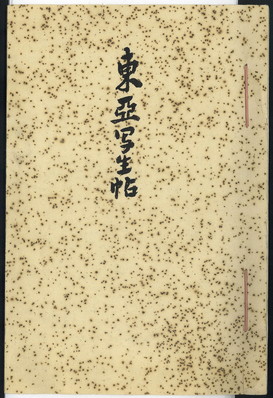 東亞写生帖